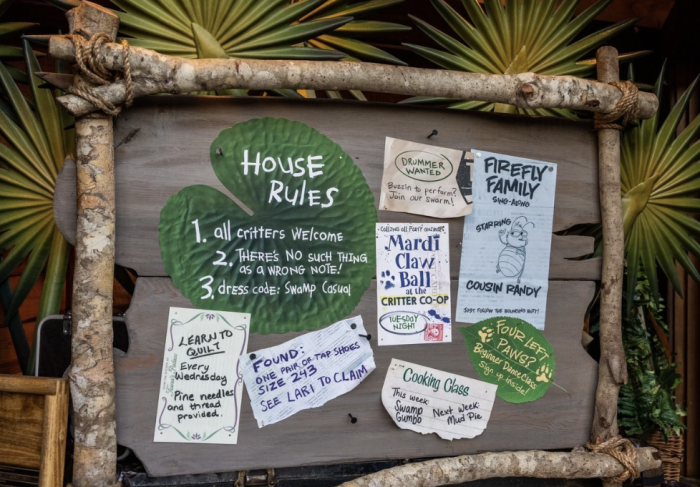 HOUSE
RULES
1. all critters welcome
2. THERE'S NO SUCH THING
AS A WRONG NOTE!
3. dress code: Swamp Casual
DRUMMER
WANTED
Buzzin to perform?
Join our swarm!
FIREFLY
FAMILY
SING-ALONG
STARRING
COUSIN RANDY
JUST FOLLOW THE BOUNCING BUTT!
Calling all Party animals
Mardi
Claw
Ball
at the
CRITTER CO-OP
TUESDAY
NIGHT
FOUR LEFT
PAWS?
Beginner Dance Class
Sign up inside!
LEARN TO
QUILT
Every
Wednesday
Pine needles
and thread
provided.
FOUND:
ONE PAIR OF TAP SHOES
SIZE 243
SEE LARI TO CLAIM
Cooking Class
This week:
Swamp
Gumbo
Next Week:
Mud Pie